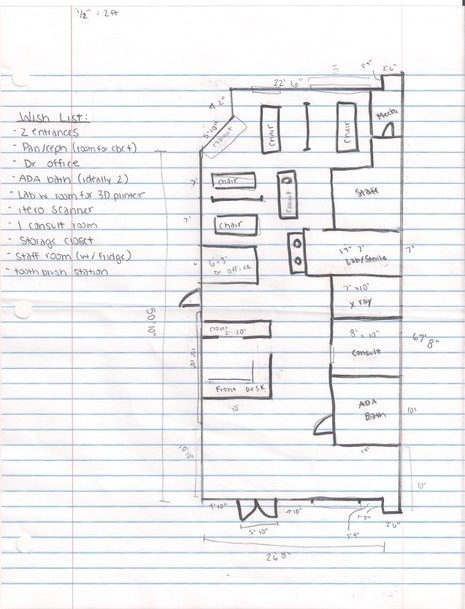 1/2" = 2ft
Wish List:
- 2 entrances
- Pan/ceph (room for cbct)
- Dr office
- ADA bath (ideally 2)
- Lab w room for 3D printer
- itero scanner
- 1 consult room
- Storage closet
- staff room (w/ fridge)
- tooth brush station
22' 6"
2'6"
4'2"
5'10"
cabinet
chair
chair
Mech
chair
cabinet
Staff
7'
chair
7'
Dr Office
17' 7"
Lab/Sterile
7'
7' x 10'
x ray
50' 10"
closet
8' x 10'
consult
67' 8"
Front Desk
10'
ADA
Bath
10'
10'
4'10"
5' 10"
4'10"
2'6"
26' 8"